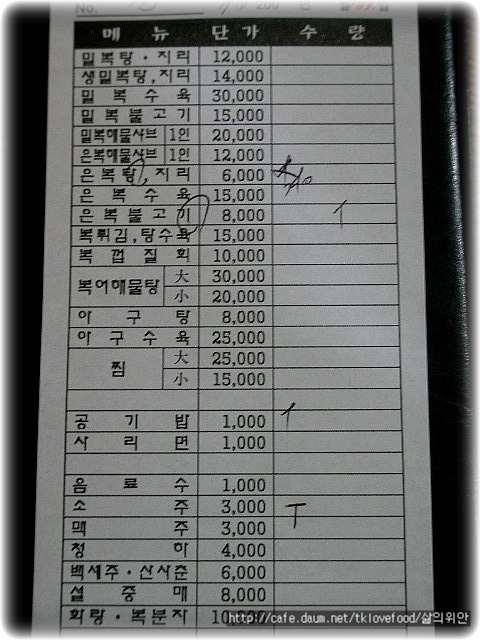 No. 200
메 뉴 단 가 수 량
밀복탕·지리 12,000
생밀복탕,지리 14,000
밀 복 수 육 30,000
밀 복 불 고 기 15,000
밀복해물샤브 1인 20,000
은복해물샤브 1인 12,000
은복탕,지리 6,000
은 복 수 육 15,000
은 복 불 고 기 8,000
복튀김,탕수육 15,000
복 껍 질 회 10,000
복어해물탕 大 30,000
小 20,000
아 구 탕 8,000
아 구 수 육 25,000
찜 大 25,000
小 15,000
공 기 밥 1,000
사 리 면 1,000
음 료 수 1,000
소 주 3,000
맥 주 3,000
청 하 4,000
백세주·산사춘 6,000
설 중 매 8,000
화랑·복분자 10,000
http://cafe.daum.net/tklovefood/삶의위안